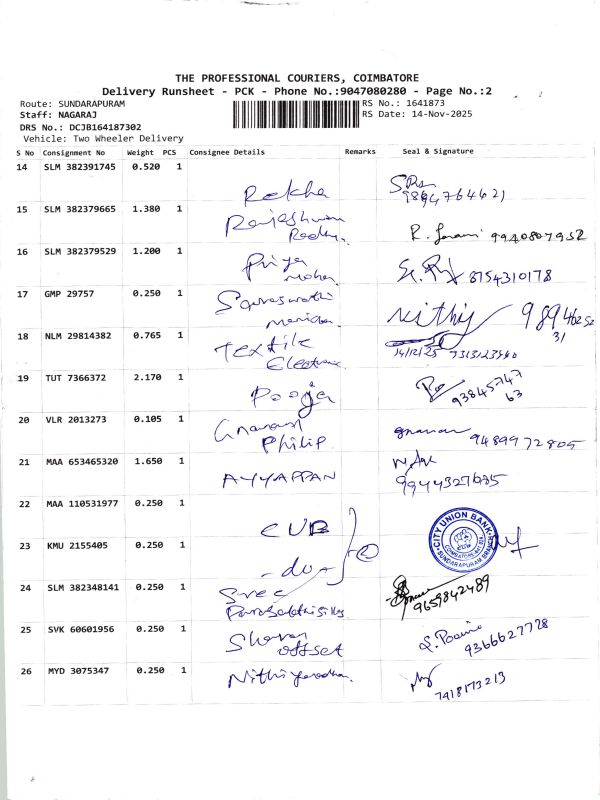 THE PROFESSIONAL COURIERS, COIMBATORE
Delivery Runsheet - PCK - Phone No.:9047080280 - Page No.:2
Route: SUNDARAPURAM RS No.: 1641873
Staff: NAGARAJ RS Date: 14-Nov-2025
DRS No.: DCJB164187302
Vehicle: Two Wheeler Delivery
S No Consignment No Weight PCS Consignee Details Remarks Seal & Signature
14 SLM 382391745 0.520 1
Rekha
15 SLM 382379665 1.380 1
Rajeshwari
R. 9940807952
16 SLM 382379529 1.200 1
Priya
Mohan 8754310178
17 GMP 29757 0.250 1
Saraswathi
Nithij
18 NLM 29814382 0.765 1
Textile
Electronic
19 TUT 7366372 2.170 1
Pooja
93845747
63
20 VLR 2013273 0.105 1
Gnanam
Philip
gnanam 9489972805
21 MAA 653465320 1.650 1
AYYAPPAN
9944327635
22 MAA 110531977 0.250 1
CUB
CITY UNION BANK
SUNDARAPURAM BRANCH
23 KMU 2155405 0.250 1
- do -
24 SLM 382348141 0.250 1
Sree
9659842489
25 SVK 60601956 0.250 1
Sharan
offset
9366627728
26 MYD 3075347 0.250 1
7418173213